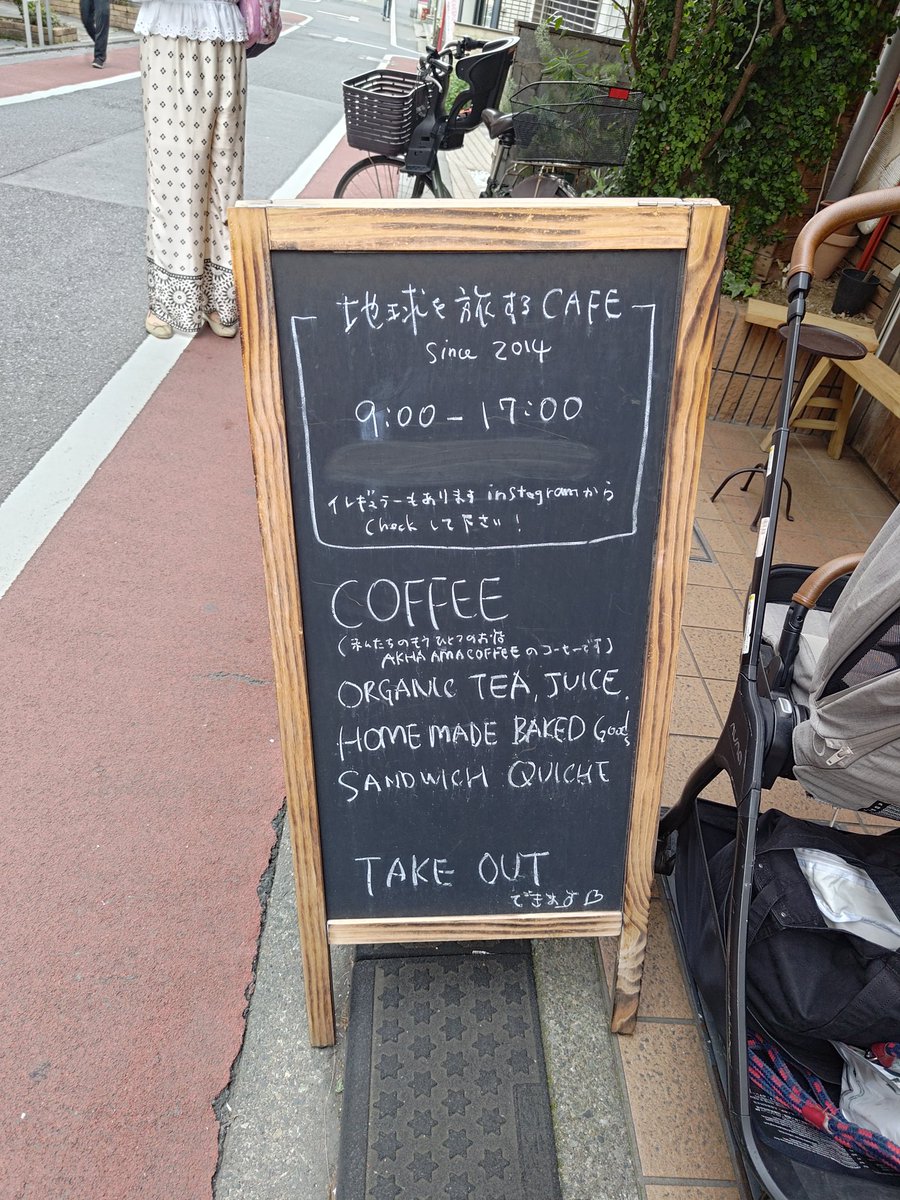 地球を旅するCAFE
since 2014
9:00-17:00
イレギュラーもあります instagramから
checkして下さい!
COFFEE
(私たちのもうひとつのお店
AKHA AMACOFFEEのコーヒーです)
ORGANIC TEA, JUICE.
HOMEMADE BAKED Goods
SANDWICH QUICHE
TAKE OUT
できます♡